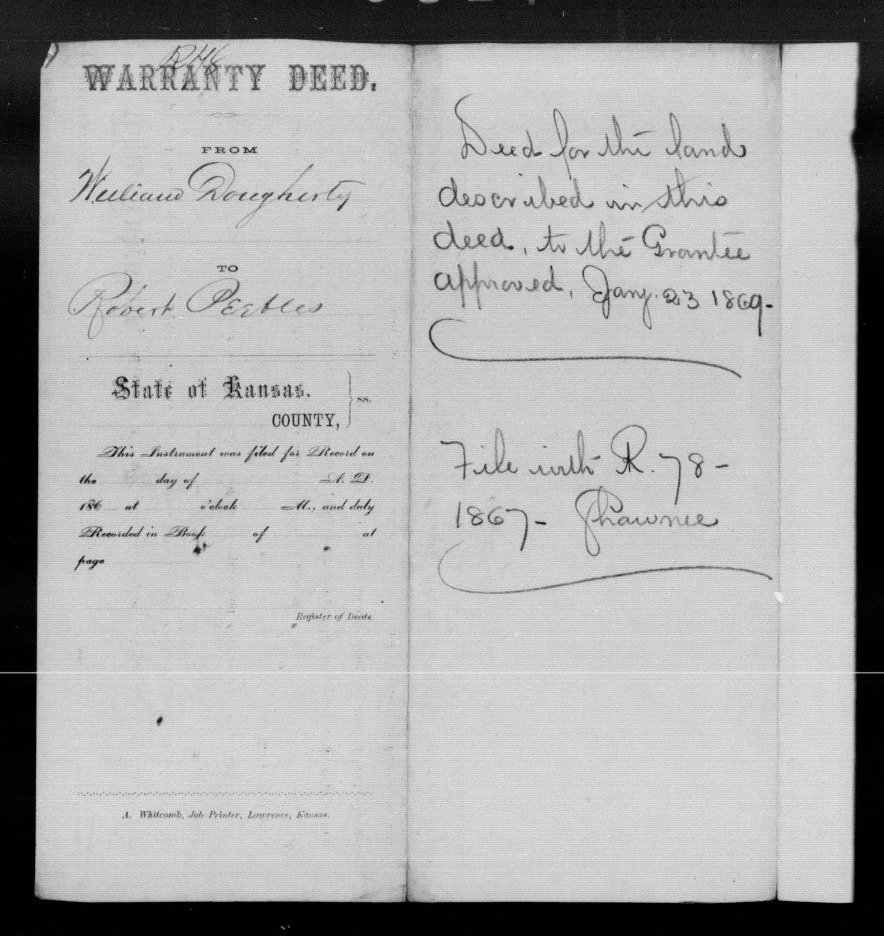 WARRANTY DEED.
FROM
William Dougherty
TO
Robert Peebles
State of Kansas,
COUNTY, } ss.
This Instrument was filed for Record on
the day of A. D.
186 at o'clock M., and duly
Recorded in Book of at
page
Register of Deeds.
A. Whitcomb, Job Printer, Lawrence, Kansas.
Deed for the land
described in this
deed, to the Grantee
approved, Jany. 23 1869-
File with R. 78-
1867- Shawnee